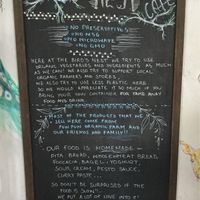 NEST
CAFE
NO PRESERVATIVES
NO MSG
NO MICROWAVE
NO GMO
HERE AT THE BIRDS NEST WE TRY TO USE
ORGANIC VEGETABLES AND INGREDIENTS AS MUCH
AS WE CAN. WE ALSO TRY TO SUPPORT LOCAL
ORGANIC FARMERS AND STORES.
WE ALSO TRY TO USE LESS PLASTIC HERE
SO WE WOULD APPRECIATE IT SO MUCH IF YOU
BRING YOUR OWN CONTAINER FOR TAKE AWAY
FOOD AND DRINK.
MOST OF THE PRODUCES THAT WE
USE HERE COME FROM
PUN PUN ORGANIC FARM AND
OUR FRIENDS AND FAMILY!
OUR FOOD IS HOMEMADE
PITA BREAD, WHOLEWHEAT BREAD
FOCCACIA, BAGEL, YOGHURT,
SOUR CREAM, PESTO SAUCE,
CURRY PASTE...
SO DON'T BE SURPRISED IF THE
FOOD IS SLOW!
WE PUT A LOT OF LOVE INTO IT